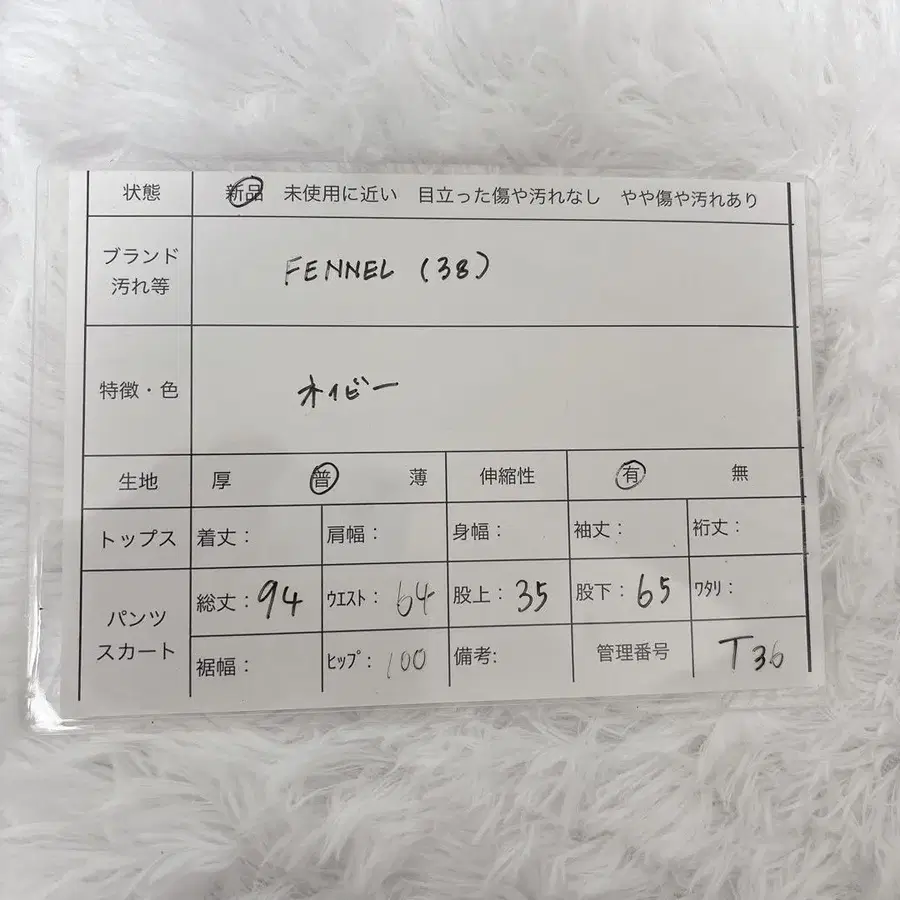 状態 新品 未使用に近い 目立った傷や汚れなし やや傷や汚れあり
ブランド
汚れ等
FENNEL (38)
特徴・色 ネイビー
生地 厚 普 薄 伸縮性 有 無
トップス 着丈: 肩幅: 身幅: 袖丈: 裄丈:
パンツ
スカート
総丈: 94 ウエスト: 64 股上: 35 股下: 65 ワタリ:
裾幅: ヒップ: 100 備考: 管理番号 T36